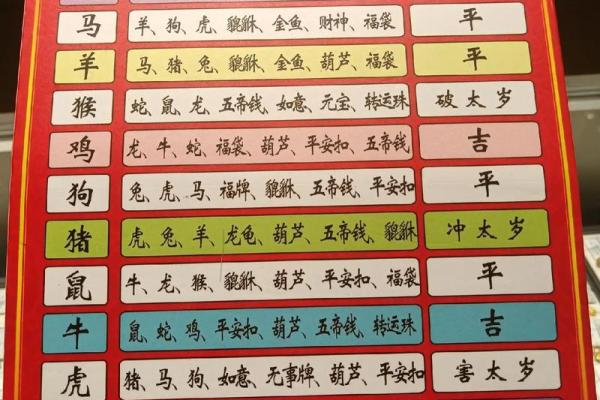 马 羊、狗、虎、貔貅、金鱼、财神、福袋 平
羊 马、猪、兔、貔貅、金鱼、葫芦、福袋 平
猴 蛇、鼠、龙、五帝钱、如意、元宝、转运珠 破太岁
鸡 龙、牛、蛇、福袋、葫芦、平安扣、五帝钱 吉
狗 兔、虎、马、福牌、貔貅、五帝钱、平安扣 平
猪 虎、兔、羊、龙龟、葫芦、五帝钱、貔貅 冲太岁
鼠 牛、龙、猴、貔貅、葫芦、平安扣、福袋 平
牛 鼠、蛇、鸡、平安扣、葫芦、五帝钱、转运珠 吉
虎 猪、马、狗、如意、无事牌、葫芦、平安扣 害太岁